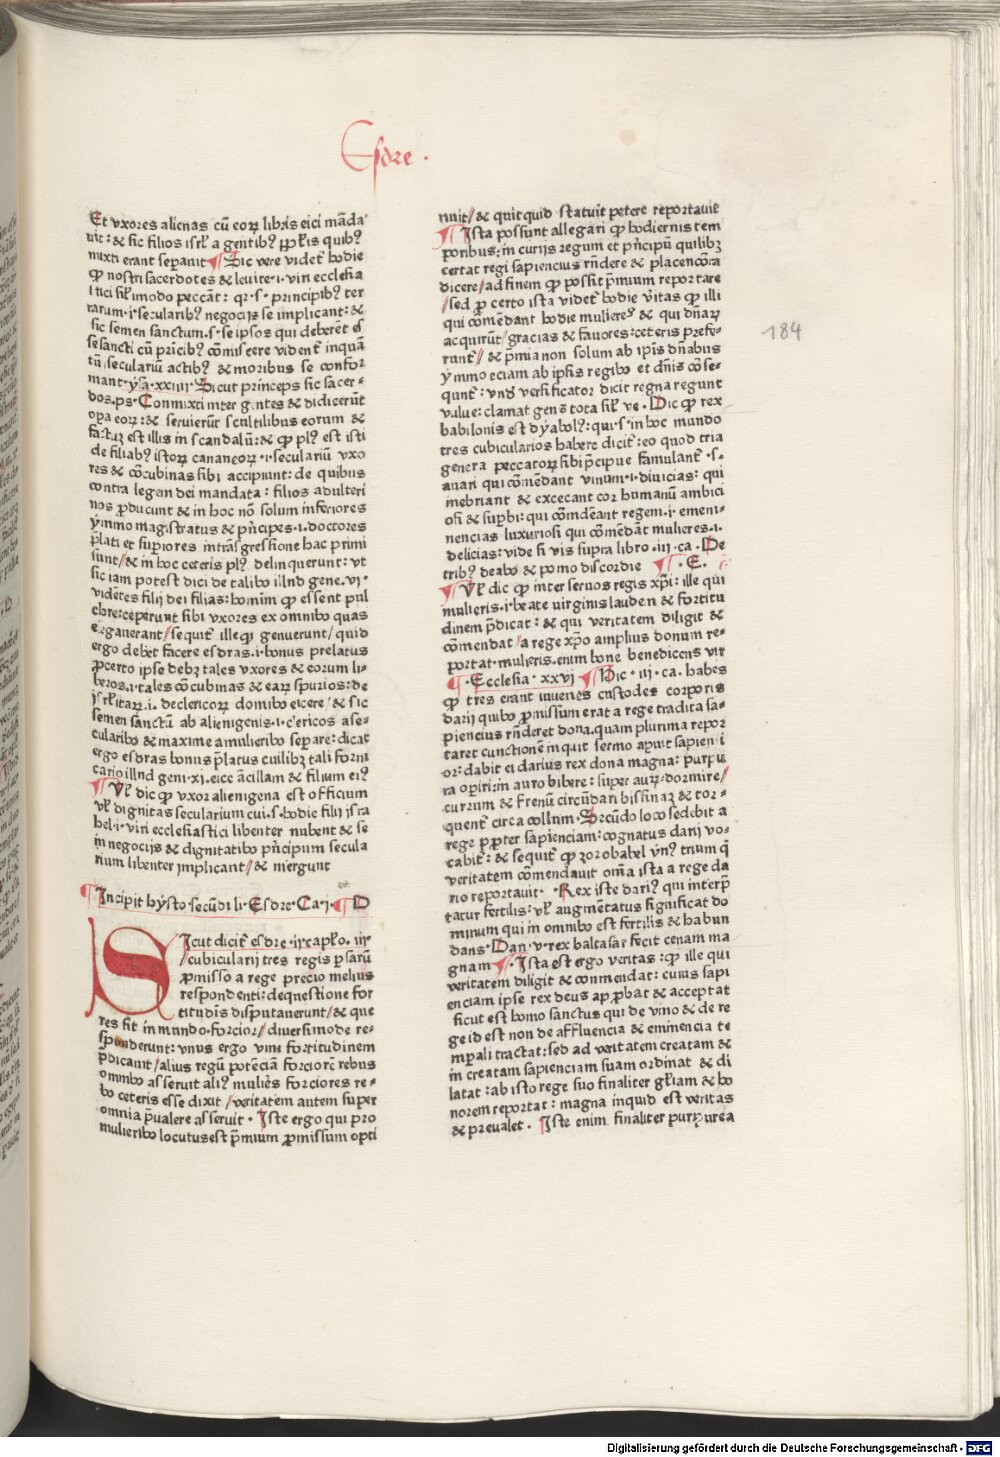 Esdre .
Et vxores alienas cū eoꝝ libris eici māda
uit : & sic filios isrł a gentibꝰ ꝓpłis quibꝰ
mixti erant sepauit ¶ Sic vere videt᷑ hodie
ꝙ nostri sacerdotes & leuite · i · viri ecclesia
stici simłimodo peccāt : qꝛ · s · principibꝰ ter
rarum · i · secularibꝰ negocijs se implicant : &
sic semen sanctum · s · se ipsos qui deberēt eē
se sancti cū pn̄cibꝰ cōmiscere vident᷑ inquā
tū seculariū actibꝰ & moribus se confor
mant · ysa · xxiiij · Sicut princeps sic sacer-
dos · ps · Conmixti inter gentes & didicerūt
opa eoꝝ : & seruierūt scultilibus eorum &
factū est illis in scandalū : & ꝙ plꝰ est isti
de filiabꝰ istoꝝ cananeoꝝ · i · seculariū vxo
res & cōcubinas sibi accipiunt : de quibus
contra legem dei mandata : filios adulteri
nos ꝓducunt & in hoc nō solum inferiores
ymmo magistratus & pn̄cipes · i · doctores
p̄lati et superiores intrāsgressione hac primi
sunt / & in hoc ceteris plꝰ delinquerunt : vt
sic iam potest dici de talibo illnd gene · vi ·
vidētes filij dei filias : hominū ꝙ essent pul
chre : ceperunt sibi vxores ex omnibo quas
eleganerant / sequit᷑ illeqꝫ genuerunt / quid
ergo debet facere esdras · i · bonus prelatus
ꝓcerto ipse debꝫ tales vxores & eorum li-
beros · i · tales cōcubinas & eaꝝ spurios : de
isrłitaꝝ · i · declericoꝝ domibo eicere / & sic
semen sanctū ab alienigenis · i · clericos a se-
cularibo & maxime a mulieribo separe : dicat
ergo esdras bonus p̄latus cuilibꝫ tali forni
cario illnd gen · xj · eice ācillam & filium eiꝰ
¶ Vł dic ꝙ vxor alienigena est officium
vł dignitas secularium cui · s · hodie filij isra
hel · i · viri ecclesiastici libenter nubent & se
in negocijs & dignitatibo pn̄cipum secula
rium libenter implicant / & mergunt
¶ Incipit hysto · secūdi li · Esdre · Ca · j · ¶ D
SIcut dicit᷑ esdre · ij · capło · iij ·
cubicularij tres regis p̄sarū
ꝓmisso a rege precio melius
respondenti : dequestione for
titudīs disputauerunt / & que
res sit in mundo · forcior / diuersimode re-
sponderunt : vnus ergo vini fortitudinem
p̄dicauit / alius regū potēciā forciorē rebus
omnibo asseruit aliꝰ muliēs forciores re-
bo ceteris esse dixit / veritatem autem super
omnia p̄ualere asseruit · Iste ergo qui pro
mulieribo locutus est p̄mium ꝓmissum opti
nuit / & quitquid statuit petere reportauit
¶ Ista possunt allegari ꝙ hodiernis tem
poribus : in curijs regum et pn̄cipū quilibꝫ
certat regi sapiencius rn̄dere & placencōra
dicere / ad finem ꝙ possit p̄mium reportare
/ sed ꝓ certo ista videt᷑ hodie v̄itas ꝙ illi
qui cōmēdant hodie mulieres & qui dn̄aꝝ
acquirūt / gracias & fauores : ceteris prefe-
runt᷑ / & p̄mia non solum ab ipīs dn̄abus
ymmo eciam ab ipsis regibo et dn̄is cōse-
qunt᷑ : vnđ versificator dicit regna regunt
vulue : clamat gens tota sił ve · Dic ꝙ rex
babilonis est dyabolꝰ : qui · s · in hoc mundo
tres cubicularios habere dicit᷑ : eo quod tria
genera peccatoꝝ sibi p̄cipue famulant᷑ · s ·
auari qui cōmēdant vinum · i · diuicias : qui
inebriant & excecant cor humanū ambici
osi & suꝑbi : qui cōmdēant regem · i · emeni-
nencias luxuriosi qui cōmēdāt mulieres · i ·
delicias : vide si vis supra libro · iij · ca · De
tribꝰ deabo & pomo discordie ¶ · E ·
¶ Vł dic ꝙ inter seruos regis xp̄i : ille qui
mulieris · i · beate uirginis lauden & fortitu
dinem p̄dicat : & qui veritatem diligit &
cōmendat / a rege xp̄o amplius donum re-
portat · mulieris · enim bone benedicens vir
¶ · Ecclesia · xxvj ¶ Dic · iij · ca · habes
ꝙ tres erant iuuenes custodes corporis
darij quibo ꝓmissum erat a rege tradita sa-
piencius rn̄deret dona · quam plurima repor
taret cunctionē inquit sermo apuit sapienti
or : dabit ei darius rex dona magna : purpu
ra opiri : in auro bibere : super auꝝ · dormire /
currum & frenū circūdari bissinaꝫ & tor-
quent᷑ circa collum · Secūdo loco sedebit a
rege ꝓpter sapienciam : cognatus darij vo-
cabit᷑ : & sequit᷑ ꝙ zorobabel vnꝰ trium ꝗ
veritatem cōmendauit om̄a ista a rege da
rio reportauit · Rex iste dariꝰ qui interp̄
tatur fertilis : vł augmētatus significat do
minum qui in omnibo est fertilis & habun
dans · Dan · v · rex baltasar fecit cenam ma
gnam ¶ · Ista est ergo veritas : ꝙ ille qui
veritatem diligit & conmendat : cuius sapi
enciam ipse rex deus ap ꝓbat & acceptat
sicut est homo sanctus qui de vino & de re
ge id est non de affluencia & eminencia te
mꝑali tractat : sed ad veritatem creatam &
in creatam sapienciam suam ordinat & di
latat : ab isto rege suo finaliter głiam & ho
norem reportat : magna inquid est veritas
& preualet · Iste enim finaliter purpurea
184
Digitalisierung gefördert durch die Deutsche Forschungsgemeinschaft - DFG